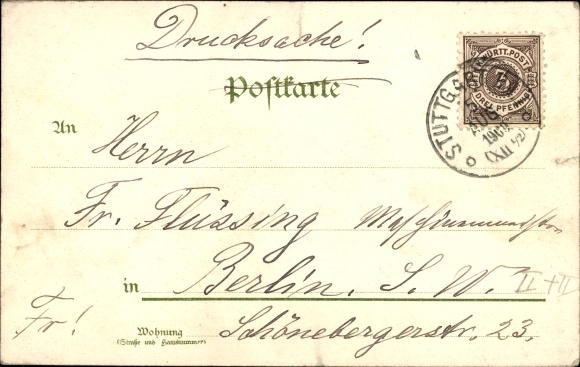 Drucksache!
Postkarte
WÜRTT. POST
3
DREI PFENNIG
STUTTGART
AUG
An
Herrn
Fr. Flüssing Maschinenmeister
in Berlin. S. W. II + III
Fr!
Wohnung
(Straße und Hausnummer)
Schönebergerstr. 23.